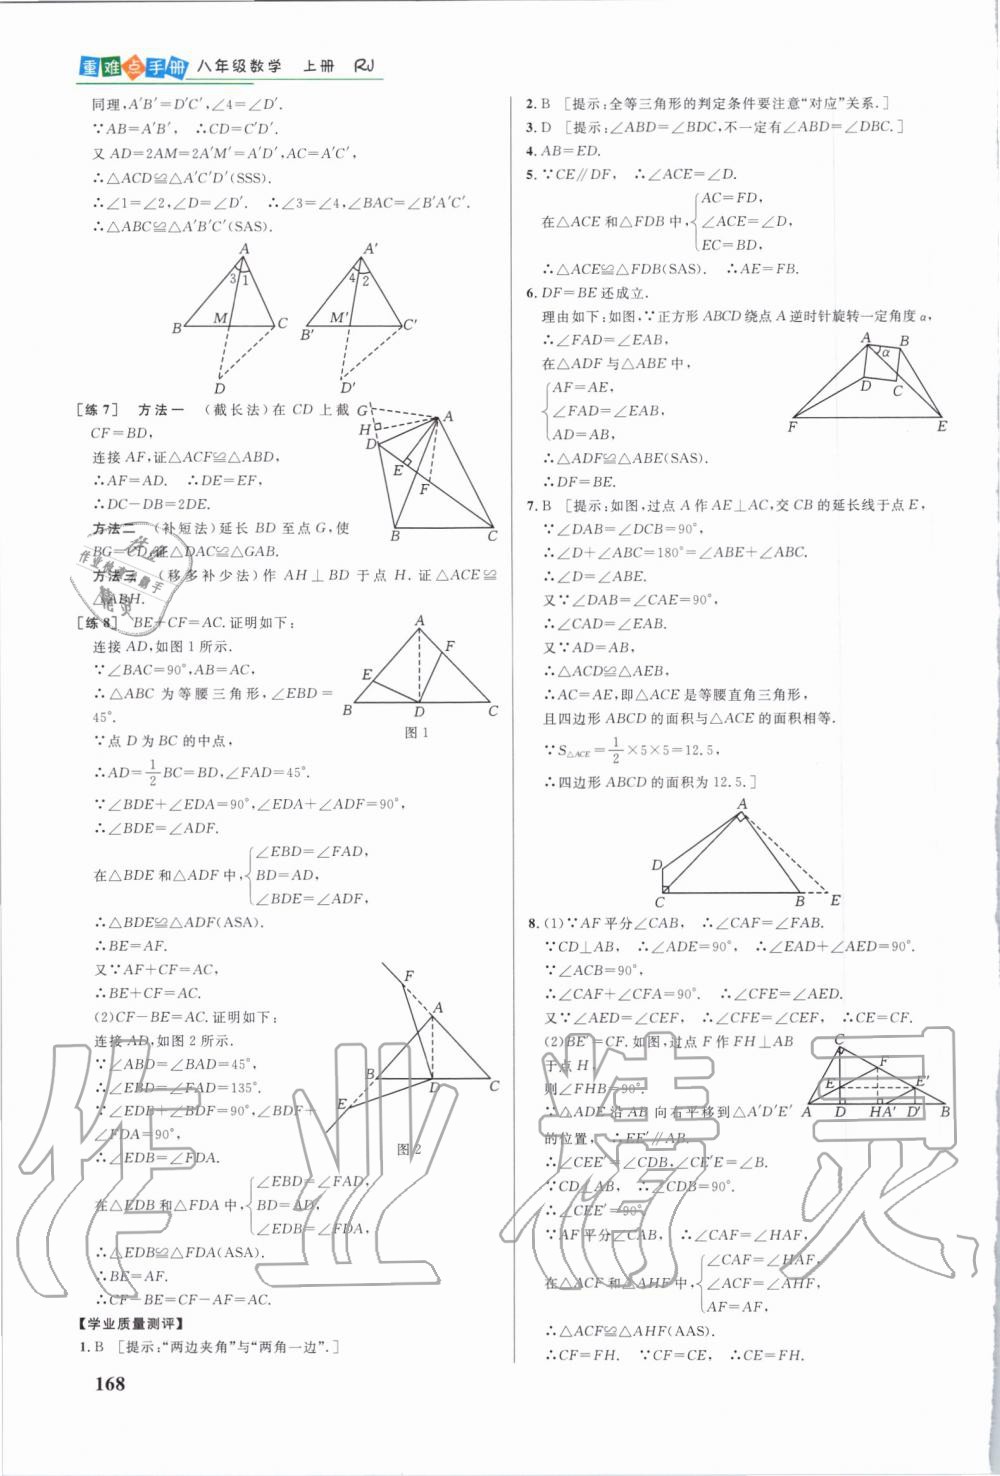 重难点手册 八年级数学 上册 RJ
同理,A′B′=D′C′,∠4=∠D′.
∵AB=A′B′, ∴CD=C′D′.
又 AD=2AM=2A′M′=A′D′,AC=A′C′,
∴△ACD≌△A′C′D′(SSS).
∴∠1=∠2,∠D=∠D′. ∴∠3=∠4,∠BAC=∠B′A′C′.
∴△ABC≌△A′B′C′(SAS).
A
3 1
B M C
D
A′
4 2
B′ M′ C′
D′
[练7] 方法一 (截长法)在 CD 上截
CF=BD,
连接 AF,证△ACF≌△ABD,
∴AF=AD. ∴DE=EF,
∴DC-DB=2DE.
方法二 (补短法)延长 BD 至点 G,使
BG=CD,证△DAC≌△GAB.
方法三 (移多补少法)作 AH⊥BD 于点 H.证△ACE≌
△ABH.
G A
H
D
E
F
B C
[练8] BE+CF=AC.证明如下:
连接 AD,如图 1 所示.
∵∠BAC=90°,AB=AC,
∴△ABC 为等腰三角形,∠EBD=
45°.
∵点 D 为 BC 的中点,
∴AD=1/2BC=BD,∠FAD=45°.
∵∠BDE+∠EDA=90°,∠EDA+∠ADF=90°,
∴∠BDE=∠ADF.
在△BDE 和△ADF 中,{∠EBD=∠FAD,
BD=AD,
∠BDE=∠ADF,
∴△BDE≌△ADF(ASA).
∴BE=AF.
又∵AF+CF=AC,
∴BE+CF=AC.
A
E F
B D C
图 1
(2)CF-BE=AC.证明如下:
连接 AD,如图 2 所示.
∵∠ABD=∠BAD=45°,
∴∠EBD=∠FAD=135°.
∵∠EDB+∠BDF=90°,∠BDF+
∠FDA=90°,
∴∠EDB=∠FDA.
在△EDB 和△FDA 中,{∠EBD=∠FAD,
BD=AD,
∠EDB=∠FDA,
∴△EDB≌△FDA(ASA).
∴BE=AF.
∴CF-BE=CF-AF=AC.
F
A
B D C
E
图 2
【学业质量测评】
1. B [提示:“两边夹角”与“两角一边”.]
168
2. B [提示:全等三角形的判定条件要注意“对应”关系.]
3. D [提示:∠ABD=∠BDC,不一定有∠ABD=∠DBC.]
4. AB=ED.
5. ∵CE∥DF, ∴∠ACE=∠D.
在△ACE 和△FDB 中,{AC=FD,
∠ACE=∠D,
EC=BD,
∴△ACE≌△FDB(SAS). ∴AE=FB.
6. DF=BE 还成立.
理由如下:如图,∵正方形 ABCD 绕点 A 逆时针旋转一定角度 α,
∴∠FAD=∠EAB,
在△ADF 与△ABE 中,
{AF=AE,
∠FAD=∠EAB,
AD=AB,
∴△ADF≌△ABE(SAS).
∴DF=BE.
A B
α
D C
F E
7. B [提示:如图,过点 A 作 AE⊥AC,交 CB 的延长线于点 E,
∵∠DAB=∠DCB=90°,
∴∠D+∠ABC=180°=∠ABE+∠ABC.
∴∠D=∠ABE.
又∵∠DAB=∠CAE=90°,
∴∠CAD=∠EAB.
又∵AD=AB,
∴△ACD≌△AEB,
∴AC=AE,即△ACE 是等腰直角三角形,
且四边形 ABCD 的面积与△ACE 的面积相等.
∵S△ACE=1/2×5×5=12.5,
∴四边形 ABCD 的面积为 12.5.]
A
D
C B E
8. (1)∵AF 平分∠CAB, ∴∠CAF=∠FAB.
∵CD⊥AB, ∴∠ADE=90°, ∴∠EAD+∠AED=90°.
∵∠ACB=90°,
∴∠CAF+∠CFA=90°. ∴∠CFE=∠AED.
又∵∠AED=∠CEF, ∴∠CFE=∠CEF, ∴CE=CF.
(2)BE′=CF.如图,过点 F 作 FH⊥AB
于点 H,
则∠FHB=90°.
∵△ADE 沿 AB 向右平移到△A′D′E′
的位置, ∴EE′∥AB.
∴∠CEE′=∠CDB,∠CE′E=∠B.
∵CD⊥AB, ∴∠CDB=90°.
∴∠CEE′=90°.
∵AF 平分∠CAB, ∴∠CAF=∠HAF,
在△ACF 和△AHF 中,{∠CAF=∠HAF,
∠ACF=∠AHF,
AF=AF,
∴△ACF≌△AHF(AAS).
∴CF=FH. ∵CF=CE, ∴CE=FH.
C
F
E E′
A D H A′ D′ B
作业精灵